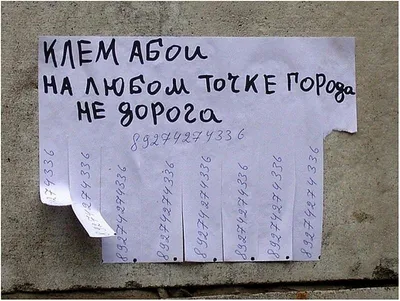 КЛЕМ АБОИ
НА ЛЮБОМ ТОЧКЕ ГОРОДА
НЕ ДОРОГА
89274274336
274336
74274336
89274274336
89274274336
89274274336
89274274336
89274274336
89274274336